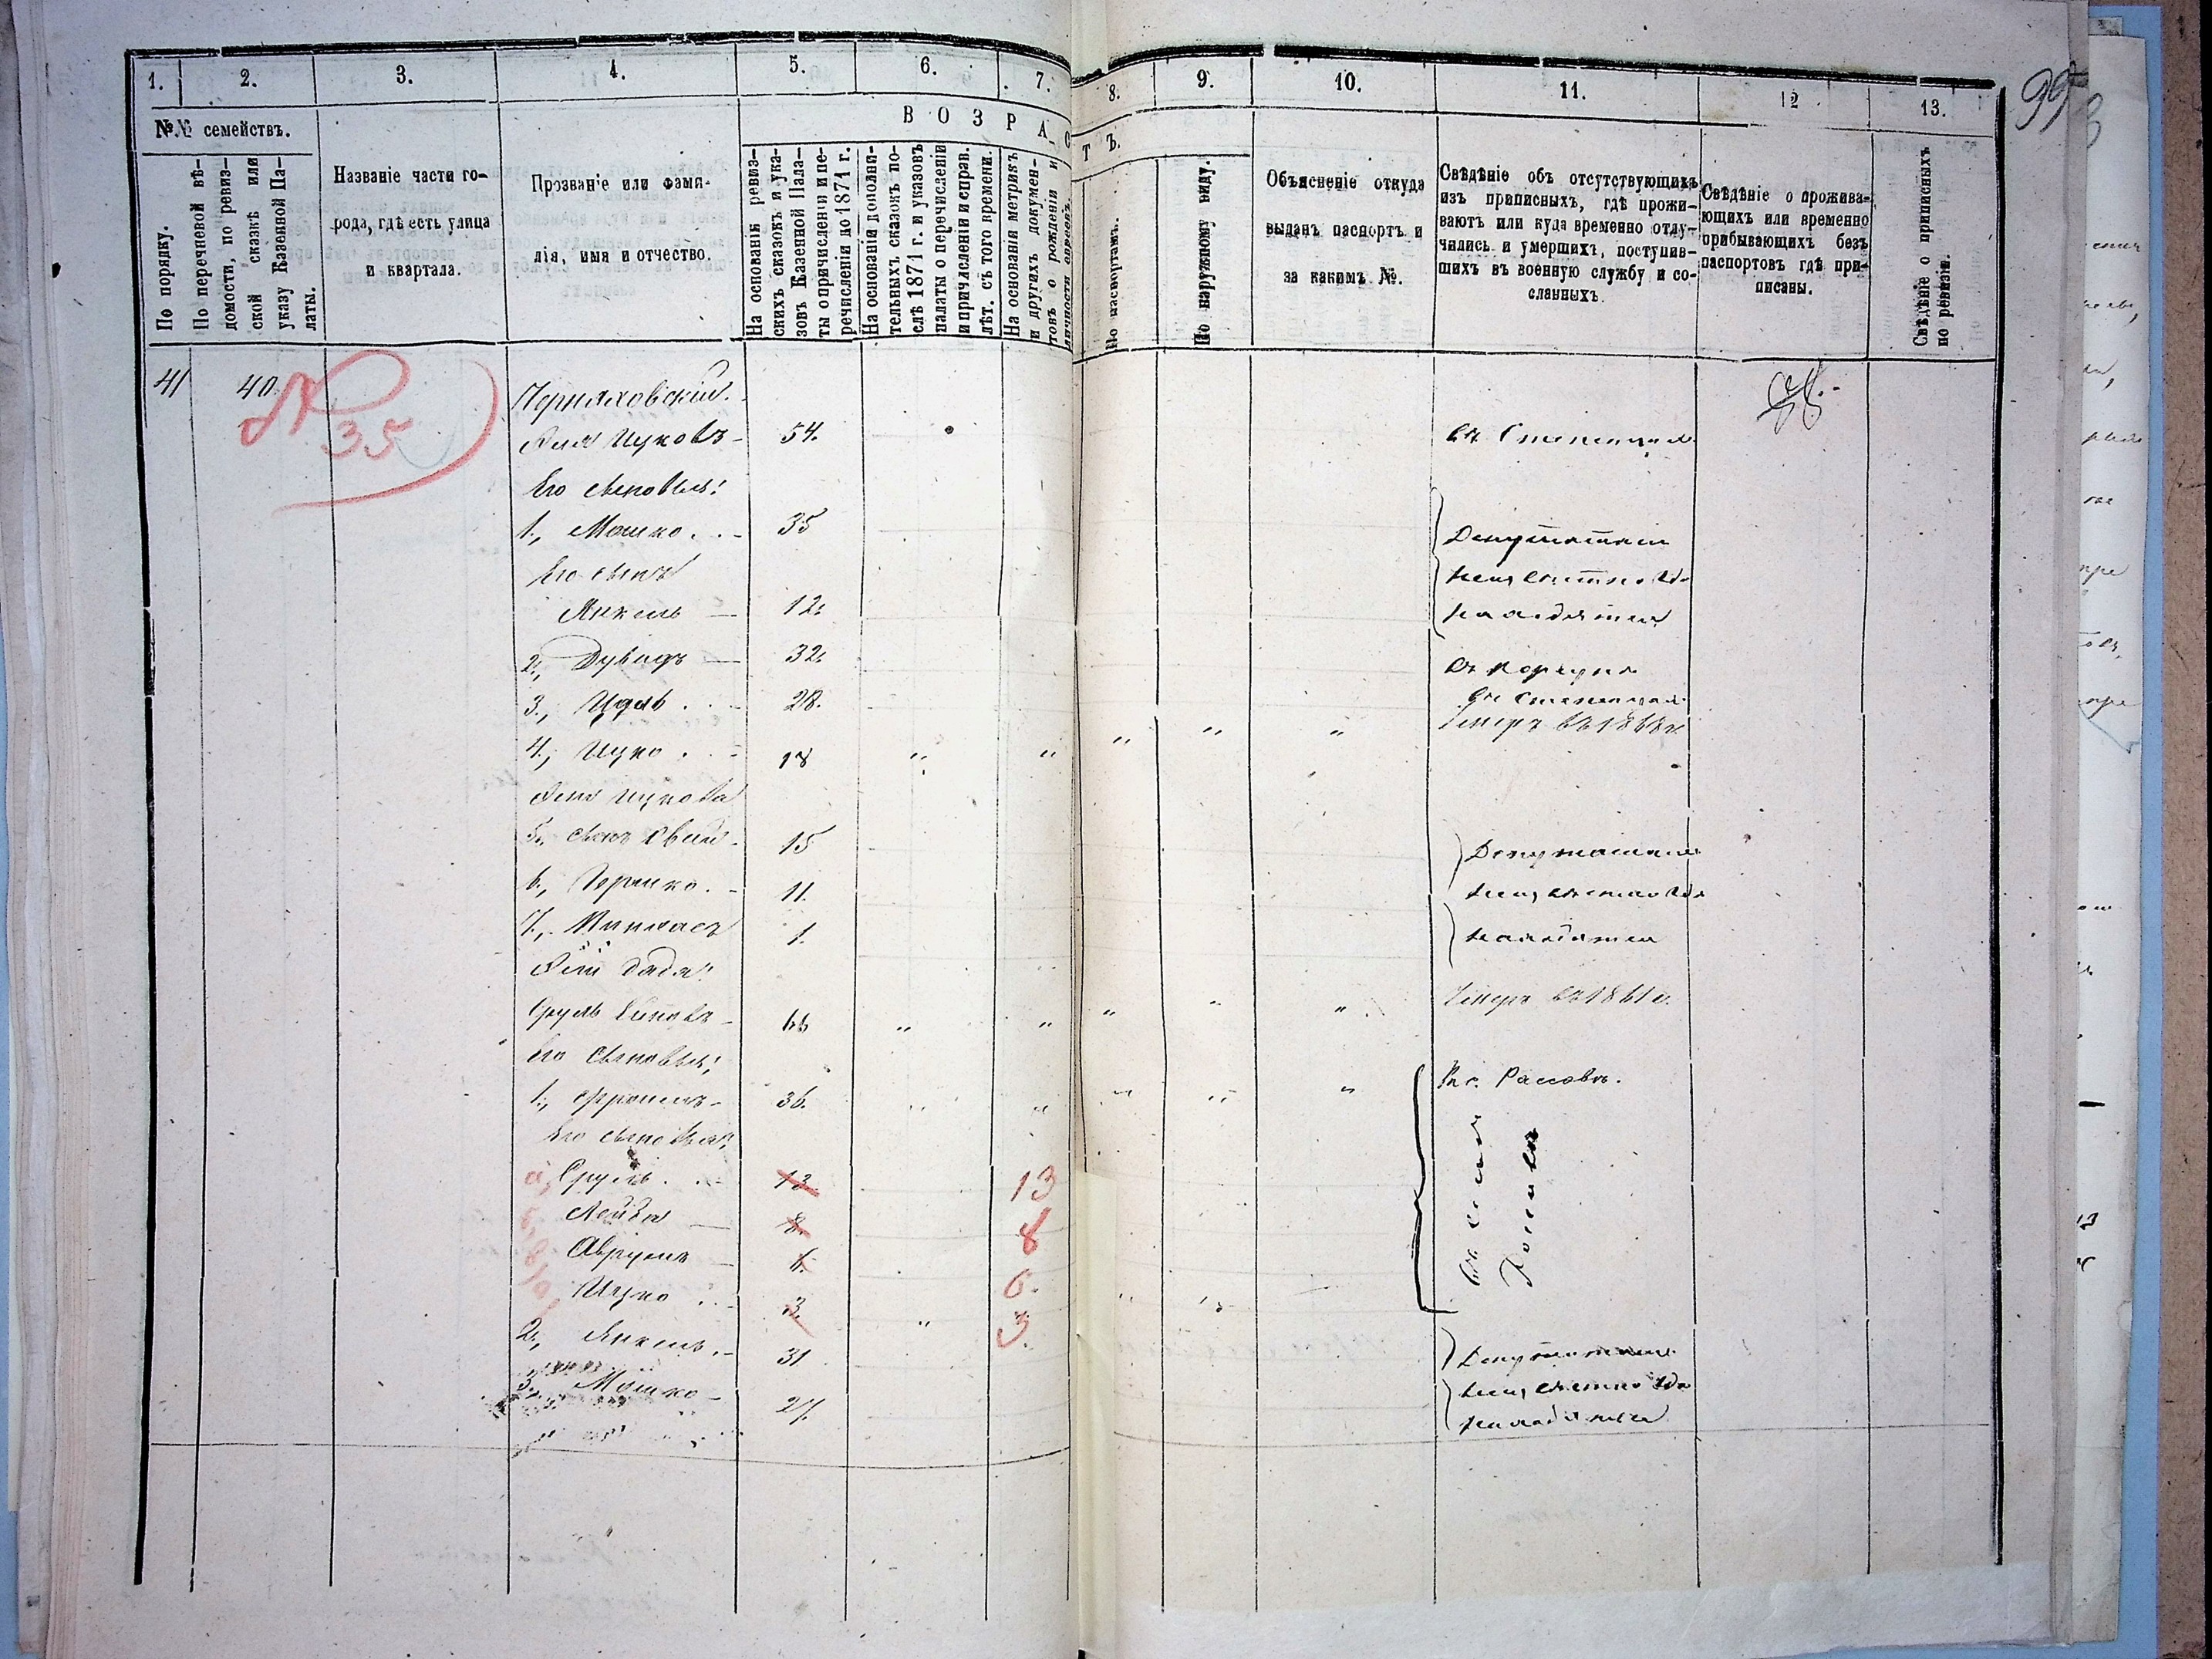 1. 2. 3. 4. 5. 6. 7. 8. 9. 10. 11. 12 13.
№№ семействъ.
По порядку.
По перечневой вѣ-
домости, по ревиз-
ской сказкѣ или
указу Казенной Па-
латы.
Названіе части го-
рода, гдѣ есть улица
и квартала.
Прозваніе или фами-
лія, имя и отчество.
ВОЗРАСТЪ.
На основаніи ревиз-
скихъ сказокъ и ука-
зовъ Казенной Пала-
ты о причисленіи и пе-
речисленіи до 1871 г.
На основаніи дополни-
тельныхъ сказокъ по-
слѣ 1871 г. и указовъ
палаты о перечисленіи
и причисленіи и справ.
лѣт. съ того времени.
На основаніи метрикъ
и другихъ докумен-
товъ о рожденіи и
личности евреевъ.
По паспортамъ.
По наружному виду.
Объясненіе откуда
выданъ паспортъ и
за какимъ №.
Свѣдѣніе объ отсутствующихъ
изъ приписныхъ, гдѣ прожи-
ваютъ или куда временно отлу-
чились и умершихъ, поступив-
шихъ въ военную службу и со-
сланныхъ.
Свѣдѣніе о прожива-
ющихъ или временно
прибывающихъ безъ
паспортовъ гдѣ при-
писаны.
Свѣдѣніе о приписныхъ
по ревизіи.
41 40 Черняховскій
№ 35
Ицковъ 54.
Его сыновья:
1., Мошко 35 Депутатами
Его сынъ неизвѣстно гдѣ
Янкель 12. находятся
2., Дувидъ 32.
3., Идль 28.
4., Ицко 18 " " " " " Умеръ въ 1868 г.
Ицкова
5., сынъ 15 Депутатами
6., Гершко 11. неизвѣстно гдѣ
7., Пинхасъ 1. находятся
дядя:
Сруль 66 " " " " " Умеръ въ 1861 г.
Его сыновья:
1., Фроимъ 36. " " " " " Въ с. Рассовъ.
Его сыновья:
а, Сруль 13 13
б, Лейба 8. 8
Аврумъ 6. 6.
Ицко 3. 3.
2., Янкель 31 Депутатами
3., Мошко 27. неизвѣстно гдѣ
находятся